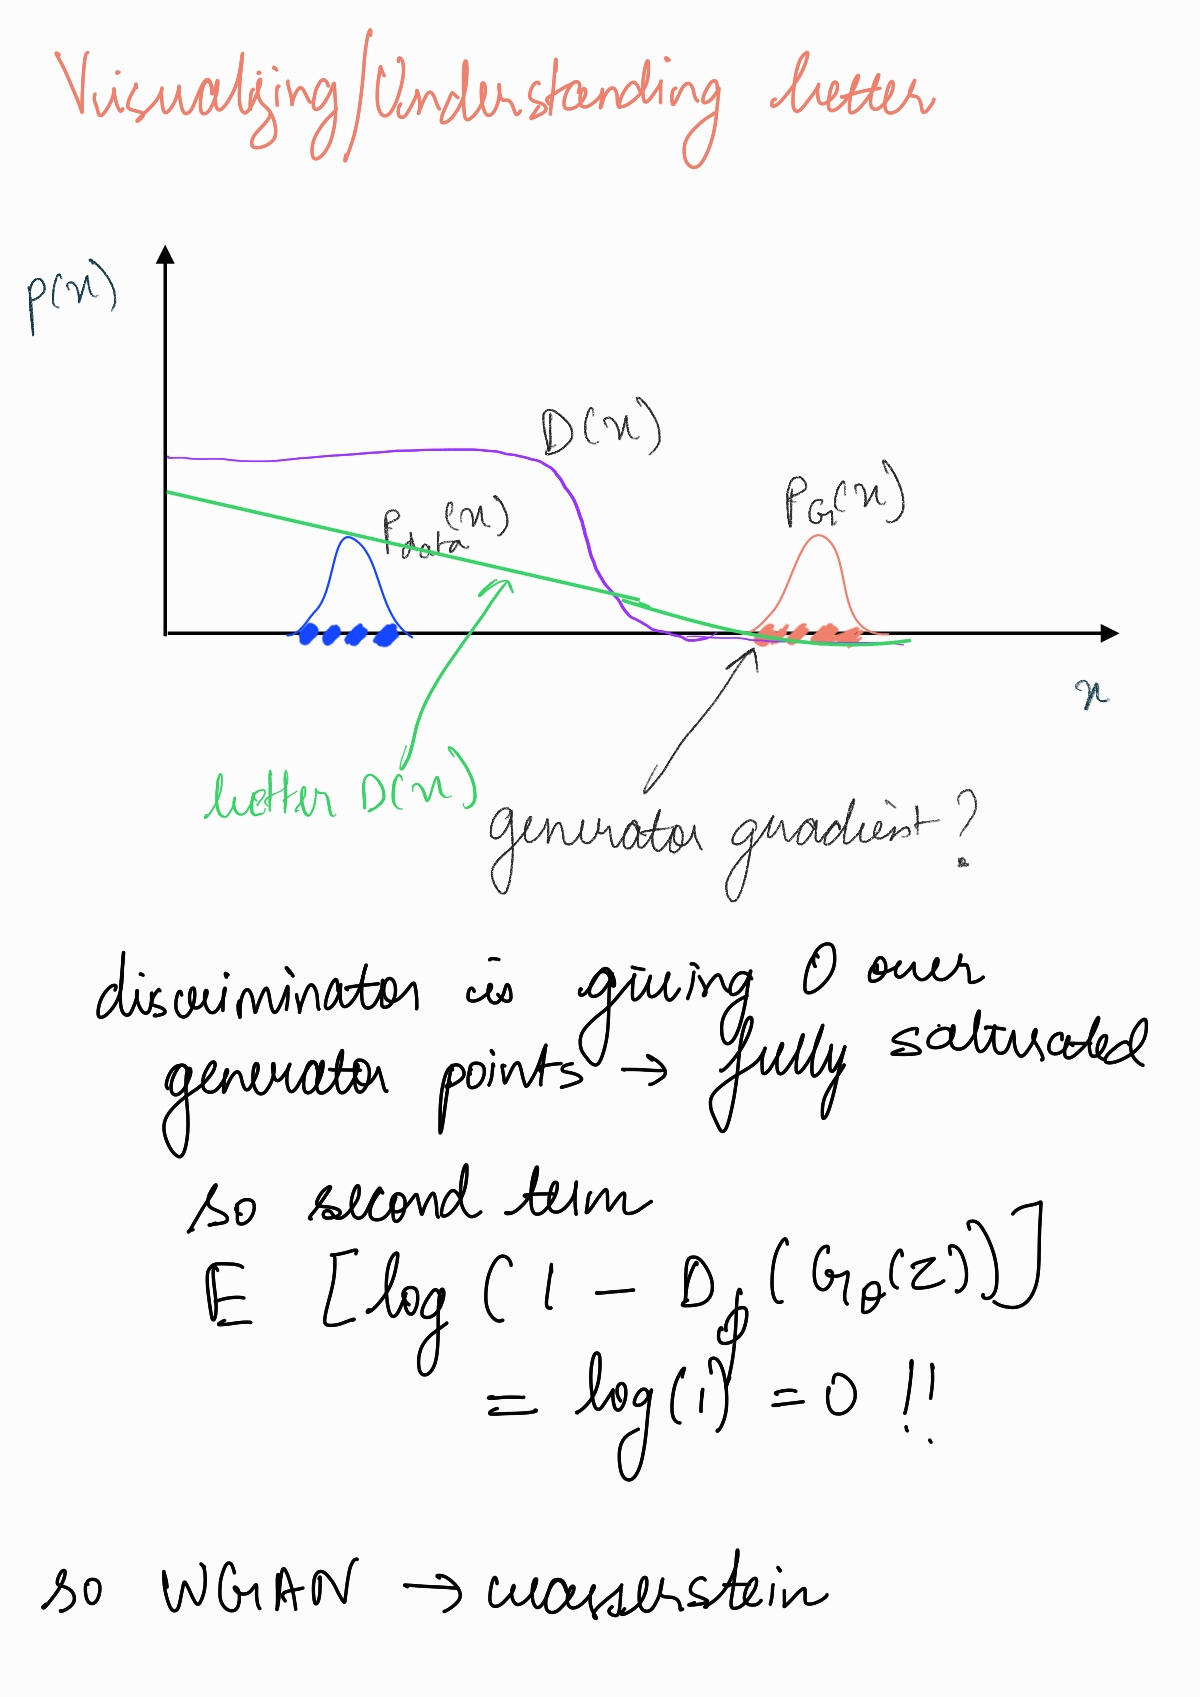 Visualizing/Understanding better
p(x)
D(x)
P_G(x)
P_data(x)
x
better D(x)
generator gradient?
discriminator is giving 0 over
generator points → fully saturated
so second term
E [log (1 - D_ϕ(G_θ(z))]
= log(1) = 0 !!
so WGAN → wasserstein